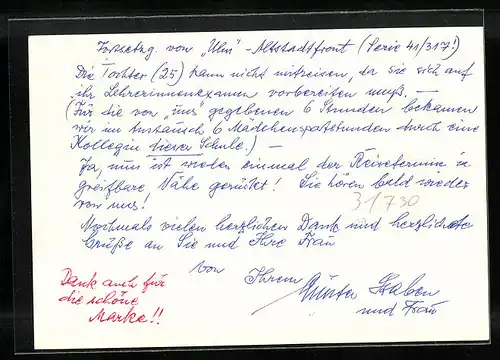 Fortsetzg von "Ulm" - Altstadtfront (Serie 41/317!)
Die Tochter (25) kann nicht mitreisen, da sie sich auf
ihr Lehrerinnenexamen vorbereiten muß. —
(Für die von "uns" gegebenen 6 Stunden bekamen
wir im Austausch 6 Mädchensportstunden durch eine
Kollegin dieser Schule.) —
Ja, nun ist wieder einmal der Reisetermin in
greifbare Nähe gerückt! Sie hören bald wieder
von uns!
31730
Nochmals vielen herzlichen Dank und herzlichste
Grüße an Sie und Ihre Frau
von Ihrem Günter
und Frau
Dank auch für
die schöne
Marke!!